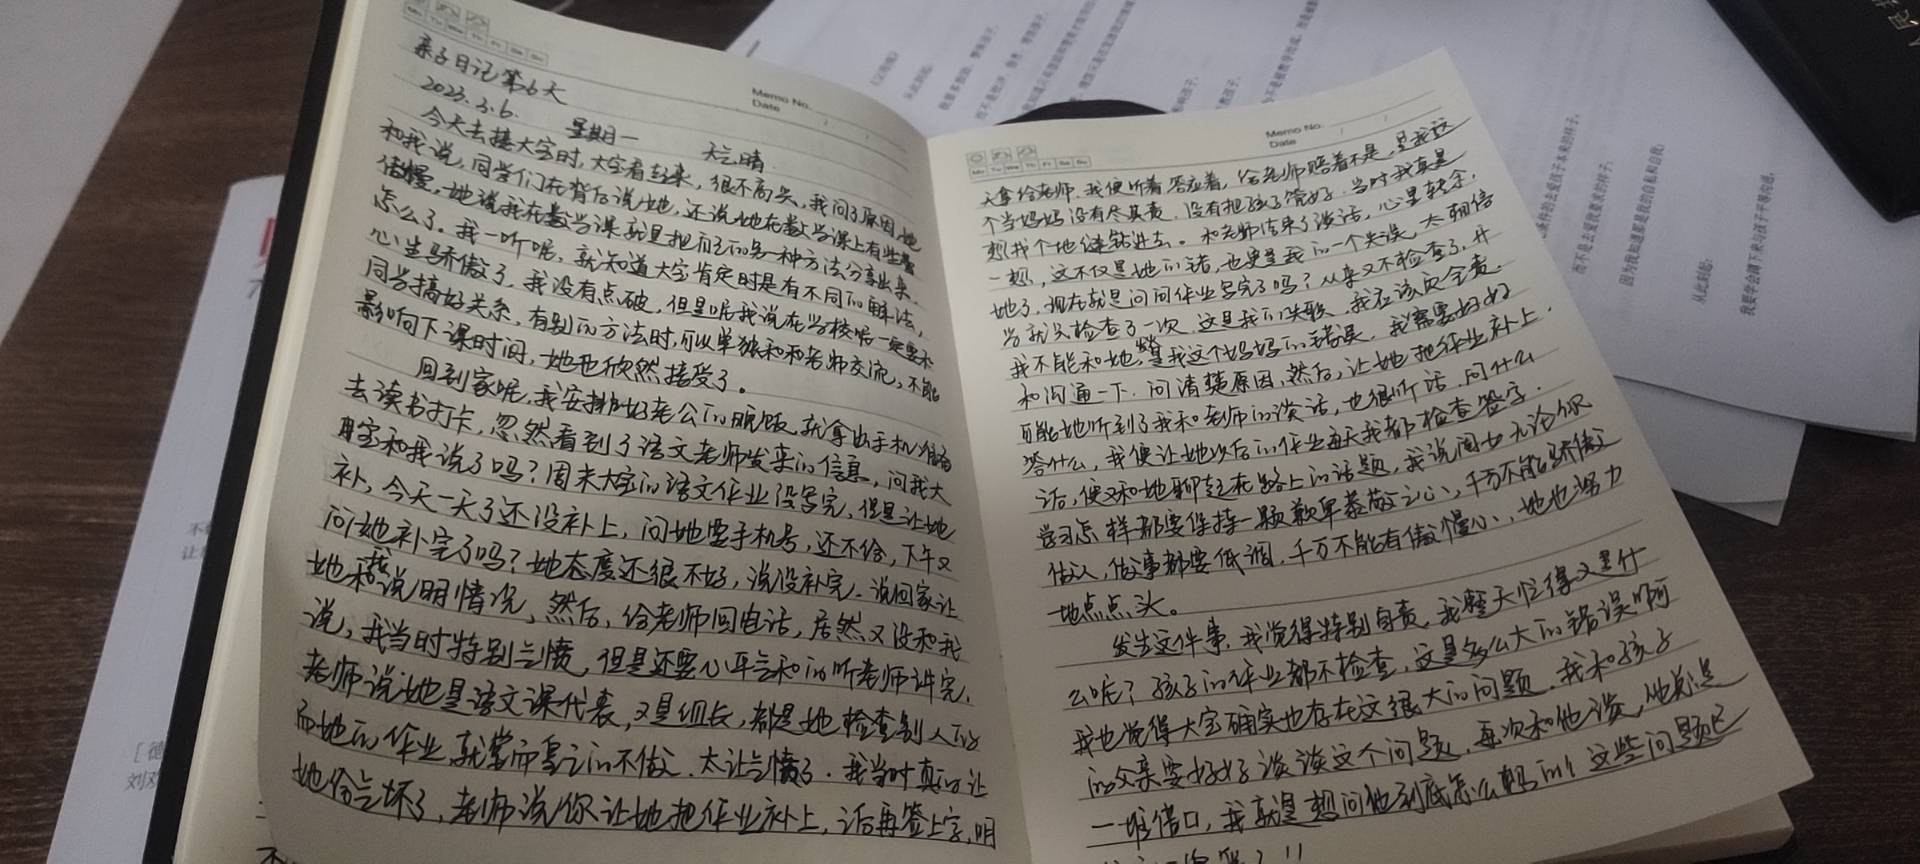 亲子日记第6天
2023.3.6. 星期一 天气晴.
今天去接大宝时,大宝看起来,很不高兴,我问了原因,她
和我说,同学们在背后说她,还说她在数学课上有些
傲慢,她说我在数学课就是把自己的另一种方法分享出来.
怎么了。我一听呢,就知道大宝肯定时是有不同的解法,
心生骄傲了,我没有点破,但是呢我说在学校呢一定要和
同学搞好关系,有别的方法时,可以单独和和老师交流,不能
影响下课时间,她也欣然接受了。
回到家呢,我安排好老公的晚饭,就拿出手机准备
去读书打卡,忽然看到了语文老师发来的信息,问我大
宝和我说了吗?周末大宝的语文作业没写完,但是让她
补,今天一天了还没补上,问她要手机号,还不给,下午又
问她补完了吗?她态度还很不好,说没补完.说回家让
她和我说明情况,然后,给老师回电话,居然又没和我
说,我当时特别气愤,但是还要心平气和的听老师讲完,
老师说她是语文课代表,又是组长,都是她检查别人的
而她的作业,就堂而皇之的不做.太让气愤了.我当时真的让
她给气坏了,老师说你让她把作业补上,话再签上字,明
天拿给老师.我便听着答应着,给老师赔着不是,是我这
个当妈妈没有尽其责,没有把孩子管好.当时我真是
想找个地缝钻进去。和老师结束了谈话,心里转念,
一想,这不仅是她的错,也更是我的一个失误,太相信
她了,现在就是问问作业写完了吗?从来又不检查了,开
学就只检查了一次,这是我的失职,我应该负全责.
我不能和她发火,是我这个妈妈的错误,我需要好好
和沟通一下.问清楚原因,然后,让她把作业补上.
可能她听到了我和老师的谈话,也很听话,问什么
答什么,我便让她以后的作业每天我都检查签字.
话,便又和她聊起在路上的话题,我说闺女无论你
学习怎样都要保持一颗谦卑恭敬之心,千万不能骄傲
做人,做事都要低调,千万不能有傲慢心,她也努力
地点点头。
发生这件事,我觉得特别自责,我整天忙得又是什
么呢?孩子的作业都不检查,这是多么大的错误啊
我也觉得大宝确实也存在这很大的问题.我和孩子
的父亲要好好谈谈这个问题,每次和他谈,他总是
一堆借口,我真是想问他到底怎么想的!这些问题已